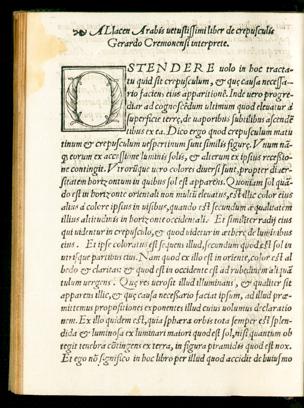 Allacen Arabis vetustissimi liber de crepusculis
Gerardo Cremonensi interprete.
OSTENDERE volo in hoc tracta
tu quid sit crepusculum, & quæ causa necessa-
rio faciens eius apparitionē. Inde vero progre-
diar ad cognoscēdum ultimum quod elevatur à
superficie terræ, de vaporibus subtilibus ascendē
tibus ex ea. Dico ergo quod crepusculum matu
tinum & crepusculum vespertinum sunt similis figuræ. Vnum nāq;
eorum ex accessione luminis solis, & alterum ex ipsius recessio-
ne contingit. Vtrorūque vero colores diversi sunt, propter diver-
sitatem horizontum in quibus sol est apparēs. Quoniam sol quā-
do est in horizonte orientali non multū elevatus, est illic color eius
alius à colore ipsius in visibus, quando est secundum æqualitatem
illius altitudinis in horizonte occidentali. Et similiter radij eius
qui videntur in crepusculo, & quod videtur in aethere, de luminibus
eius. Et ipse coloratus est sequens illud, secundum quod est sol in
utrisque partibus eius. Nam quod ex illo est in oriente, color est al-
bedo & claritas: & quod est in occidente est ad rubedinem aliquā
tulum vergens. Quæ res vero sit illud illuminans, & qualiter sit
apparens illic, & quæ causa necessario faciat ipsum, ad illud præ-
mittemus propositiones exponentes illud cuius volumus declaratio
nem. Ex illo quidem est, quia sphæra orbis tota semper est splen-
dida & luminosa ex luminari maiori quod est sol, nisi quantum ob
tegit tenebra cōtingens ex terra, in figura piramidis quod est nox.
Et ego nō significo in hoc libro per illud quod accidit de huiusmo